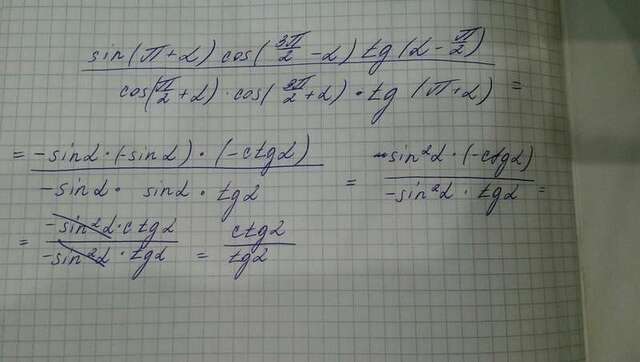 sin(π+α) cos(3π/2 -α) tg(α- π/2)
cos(π/2 +α)·cos(3π/2 +α)·tg(π+α) =
= -sinα·(-sinα)·(-ctgα) / -sinα· sinα·tgα = -sin²α·(-ctgα) / -sin²α·tgα =
= -sin²α·ctgα / -sin²α·tgα = ctgα / tgα